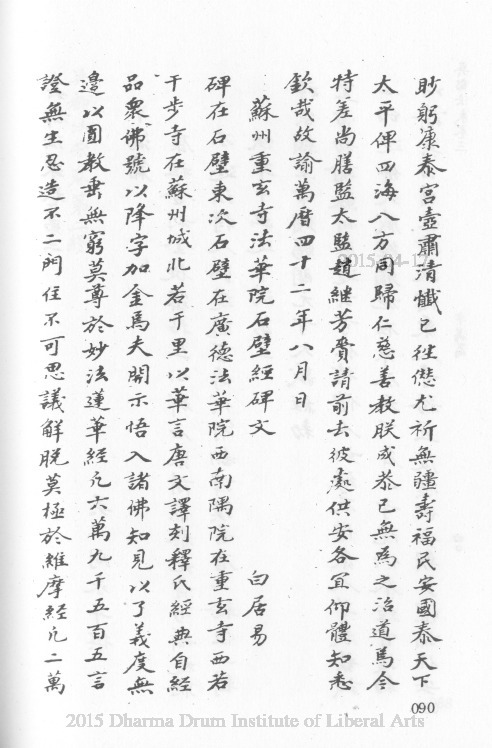 眇躬康泰宮壼肅清懺已徃愆尤祈無疆壽福民安國泰天下
太平俾四海八方同歸仁慈善教朕成恭已無為之治道焉今
特差尚膳監太監趙継芳賫請前去彼處供安各宜仰體知悉
欽哉故諭萬曆四十二年八月日
蘇州重玄寺法華院石壁經碑文 白居易
碑在石壁東次石壁在廣德法華院西南隅院在重玄寺西若
干步寺在蘇州城北若干里以華言唐文譯刻釋氏經典自經
品衆佛號以降字加金焉夫開示悟入諸佛知見以了義度無
邊以圓教垂無窮莫尊於妙法蓮華經凢六萬九千五百五言
證無生忍造不二門住不可思議解脫莫極於維摩經凢二萬
090
2015-04-1
2015 Dharma Drum Institute of Liberal Arts